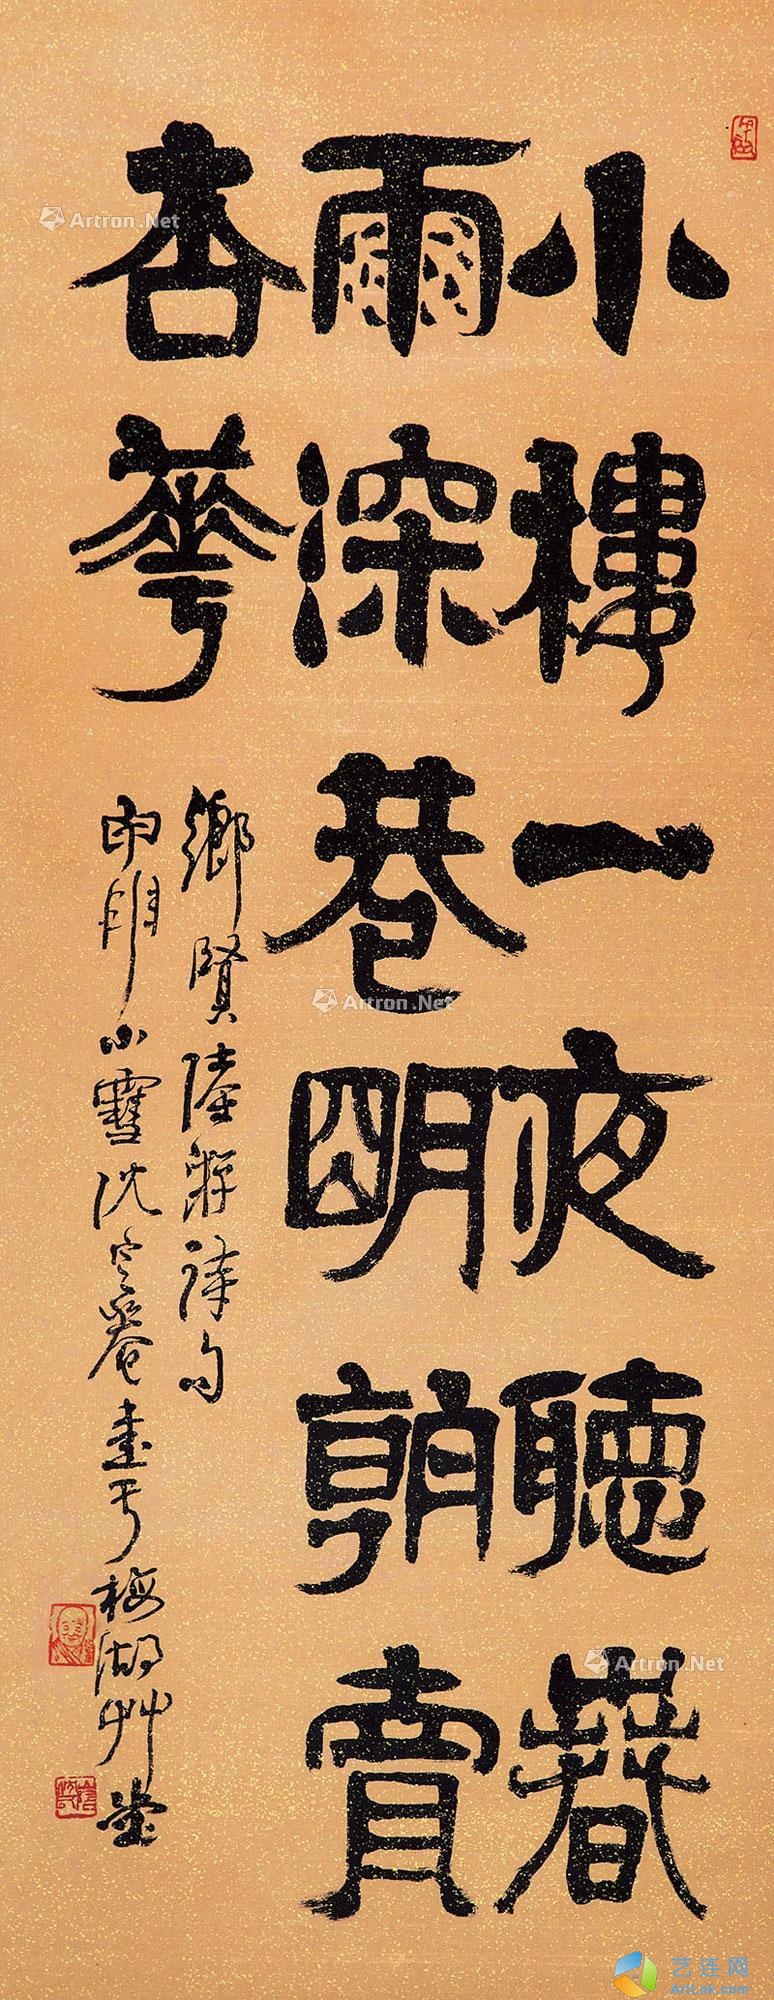 小樓一夜聽春
雨深巷明朝賣
杏華
鄉賢陸游詩句
申明小雪沈定庵書于梅湖艸堂
Artron.Net
Artron.Net
Artron.Net
艺连网
ArtLnk.com